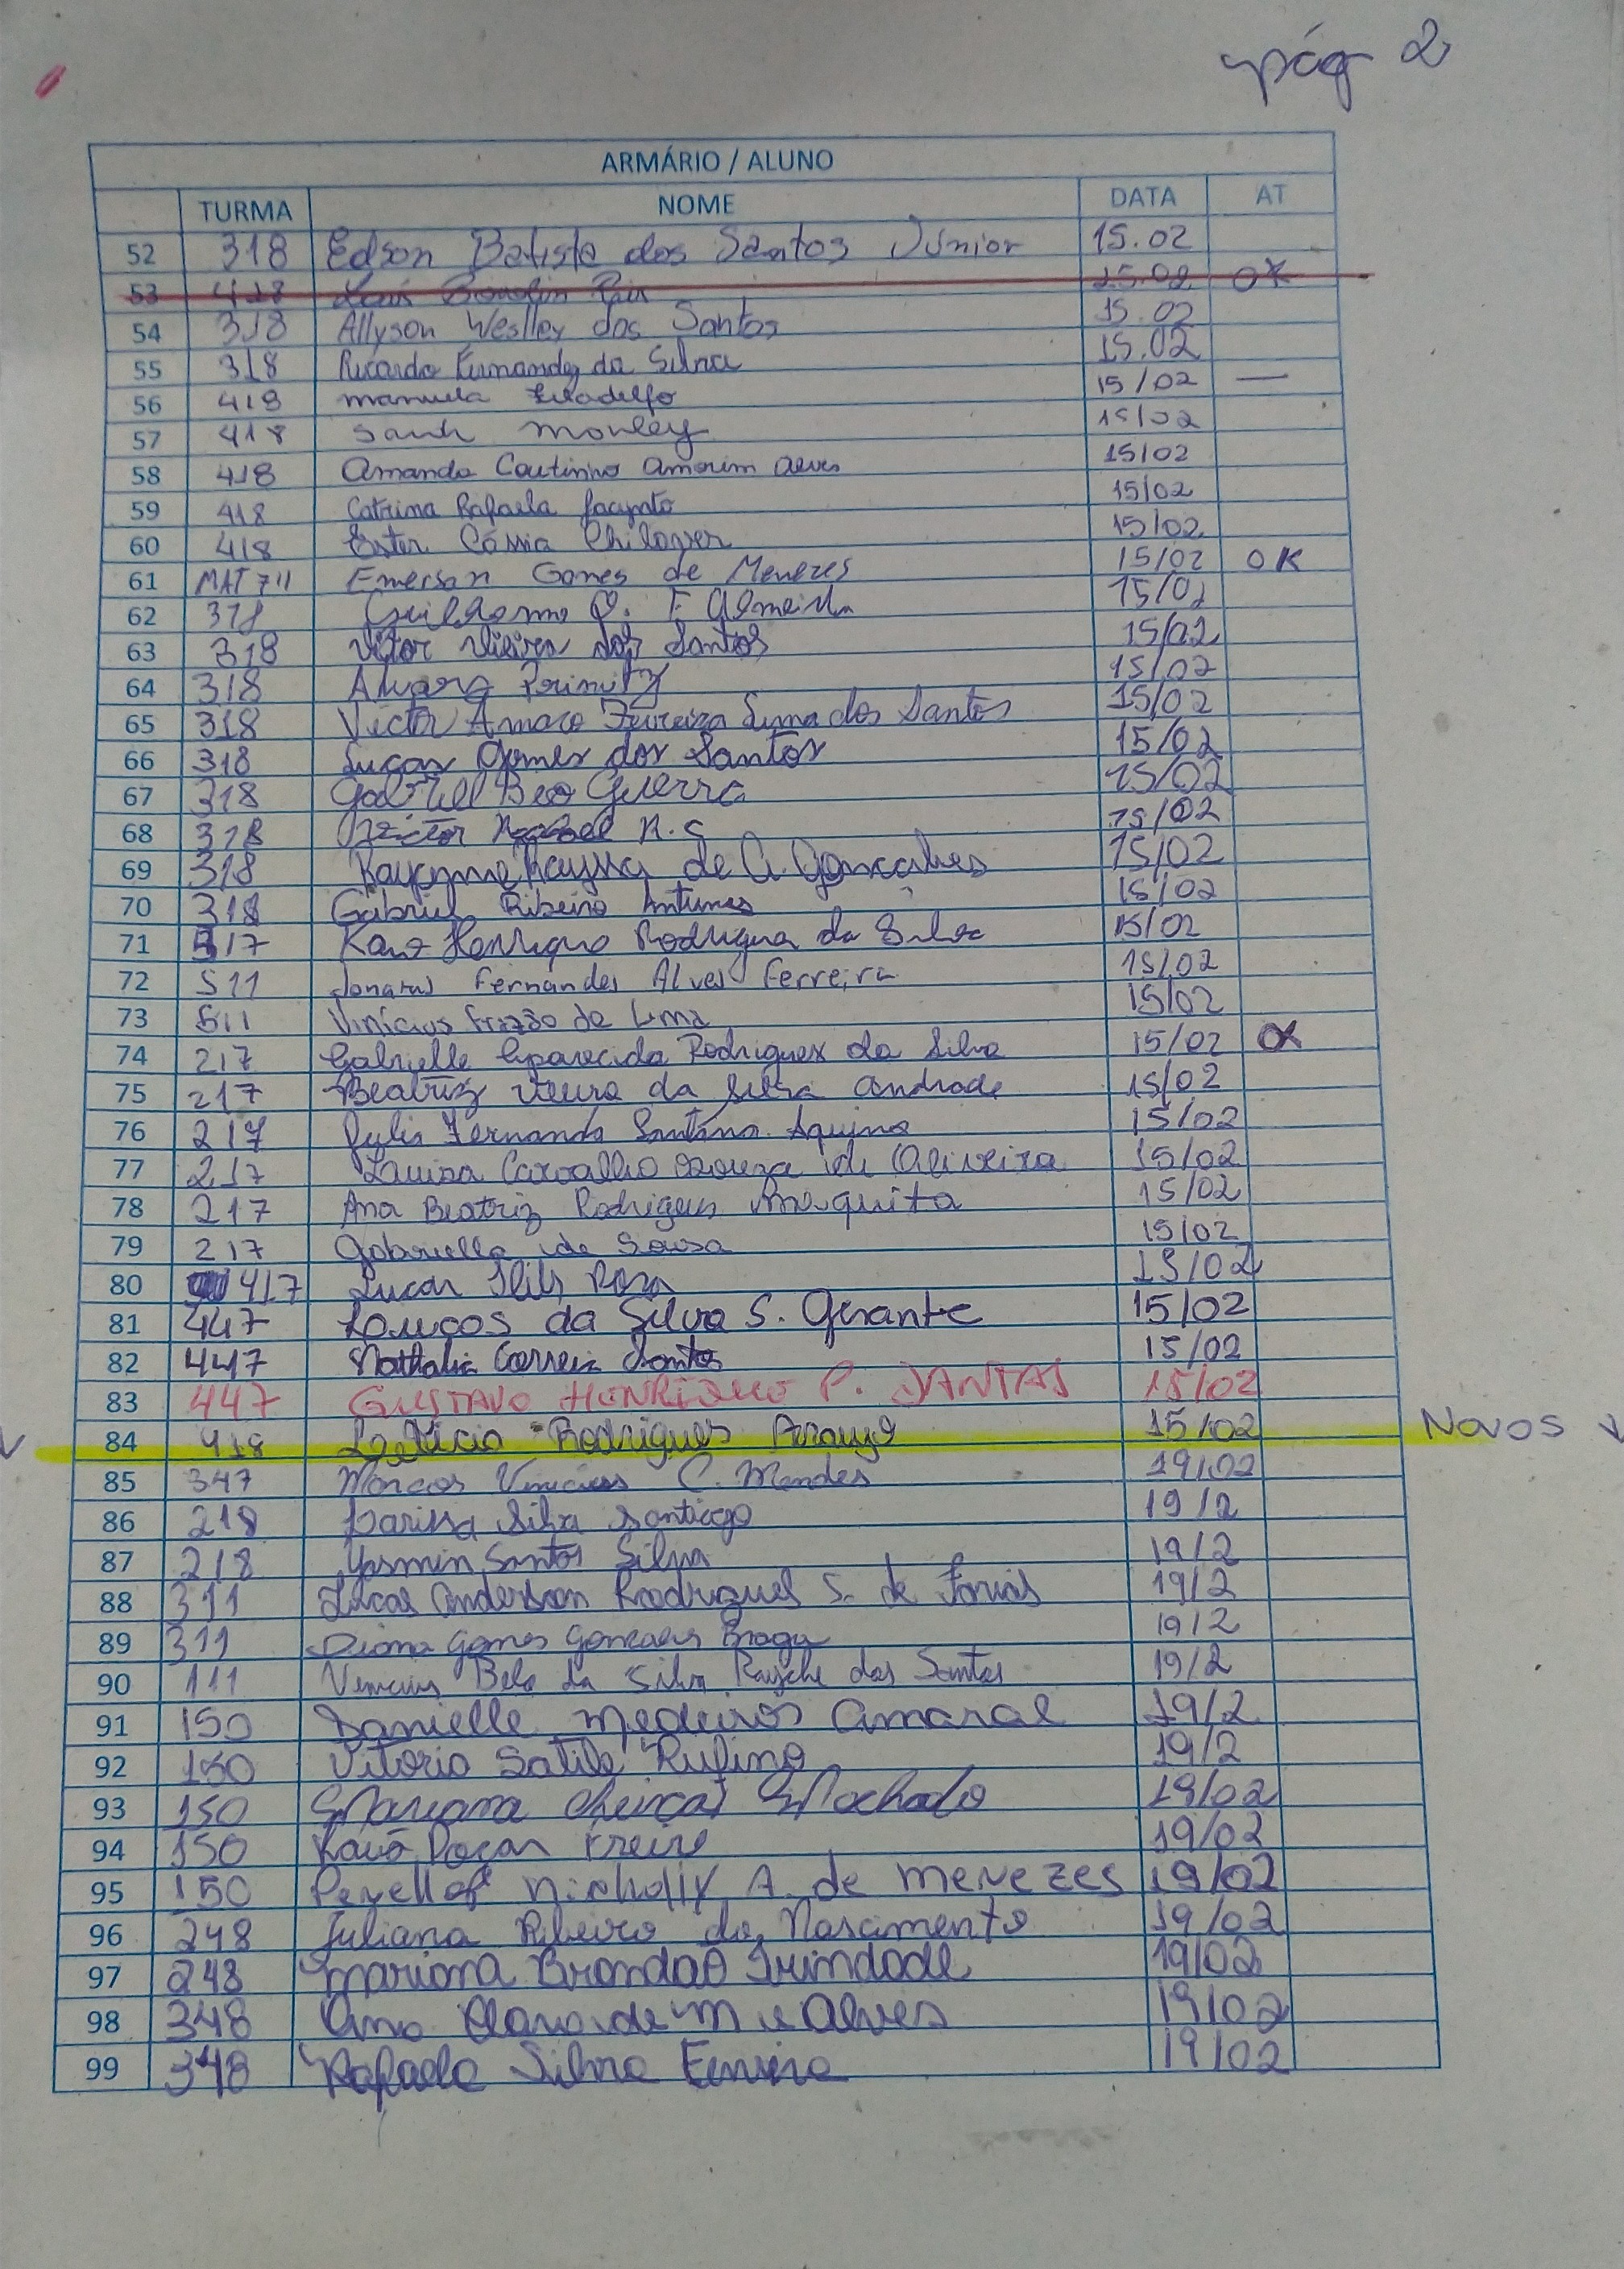 pág 2
ARMÁRIO / ALUNO
TURMA NOME DATA AT
52 318 Edson Batista dos Santos Júnior 15.02
53 418 15.02 OK
54 318 Allyson Weslley dos Santos 15.02
55 318 Ricardo Fernandes da Silva 15.02
56 418 manuela Filadelfo 15/02 —
57 418 Sarah Morley 15/02
58 418 Amanda Coutinho Amorim Alves 15/02
59 418 Catrina Rafaela Jacynto 15/02
60 418 Ester Cássia 15/02
61 MAT 711 Emerson Gomes de Menezes 15/02 OK
62 318 Guilherme O. F. Almeida 15/02
63 318 Vitor Vieira dos Santos 15/02
64 318 Alvaro 15/02
65 318 Victor Amaro Ferreira Lima dos Santos 15/02
66 318 Lucas Gomes dos Santos 15/02
67 318 Gabriel Beo Guerra 15/02
68 318 R. C 15/02
69 318 Rayanne Rayssa de A. Gonçalves 15/02
70 318 Gabriel Ribeiro Antunes 15/02
71 517 Kaio Henrique Rodrigues da Silva 15/02
72 511 Jonatas Fernandes Alves Ferreira 15/02
73 511 Vinícius Frazão de Lima 15/02
74 217 Gabrielle Aparecida Rodrigues da Silva 15/02 OK
75 217 Beatriz Vieira da Silva Andrade 15/02
76 217 Julia Fernanda Santana Aquino 15/02
77 217 Luisa Carvalho Souza de Oliveira 15/02
78 217 Ana Beatriz Rodrigues Mesquita 15/02
79 217 Gabriella de Sousa 15/02
80 417 Lucas Rosa 15/02
81 447 da Silva S. Gerante 15/02
82 447 Nathalia Correia Santos 15/02
83 447 GUSTAVO HENRIQUE P. DANTAS 15/02
84 418 Letícia Rodrigues Araujo 15/02 Novos
85 347 Marcos Vinicius C. Mendes 19/02
86 218 Larissa Silva Santiago 19/2
87 218 Yasmin Santos Silva 19/2
88 311 Lucas Anderson Rodrigues S. de Farias 19/2
89 311 Diana Gomes Gonçalves Braga 19/2
90 111 Vinicius Belo da Silva dos Santos 19/2
91 150 Danielle Medeiros Amaral 19/2
92 150 Vitoria Satilo Rufino 19/2
93 150 Mariana Machado 19/02
94 150 Kauã Freire 19/02
95 150 A. de Menezes 19/02
96 248 Juliana Ribeiro do Nascimento 19/02
97 248 Mariana Brandão Trindade 19/02
98 348 Ana Clara de M e Alves 19/02
99 348 Rafaela Silva 19/02